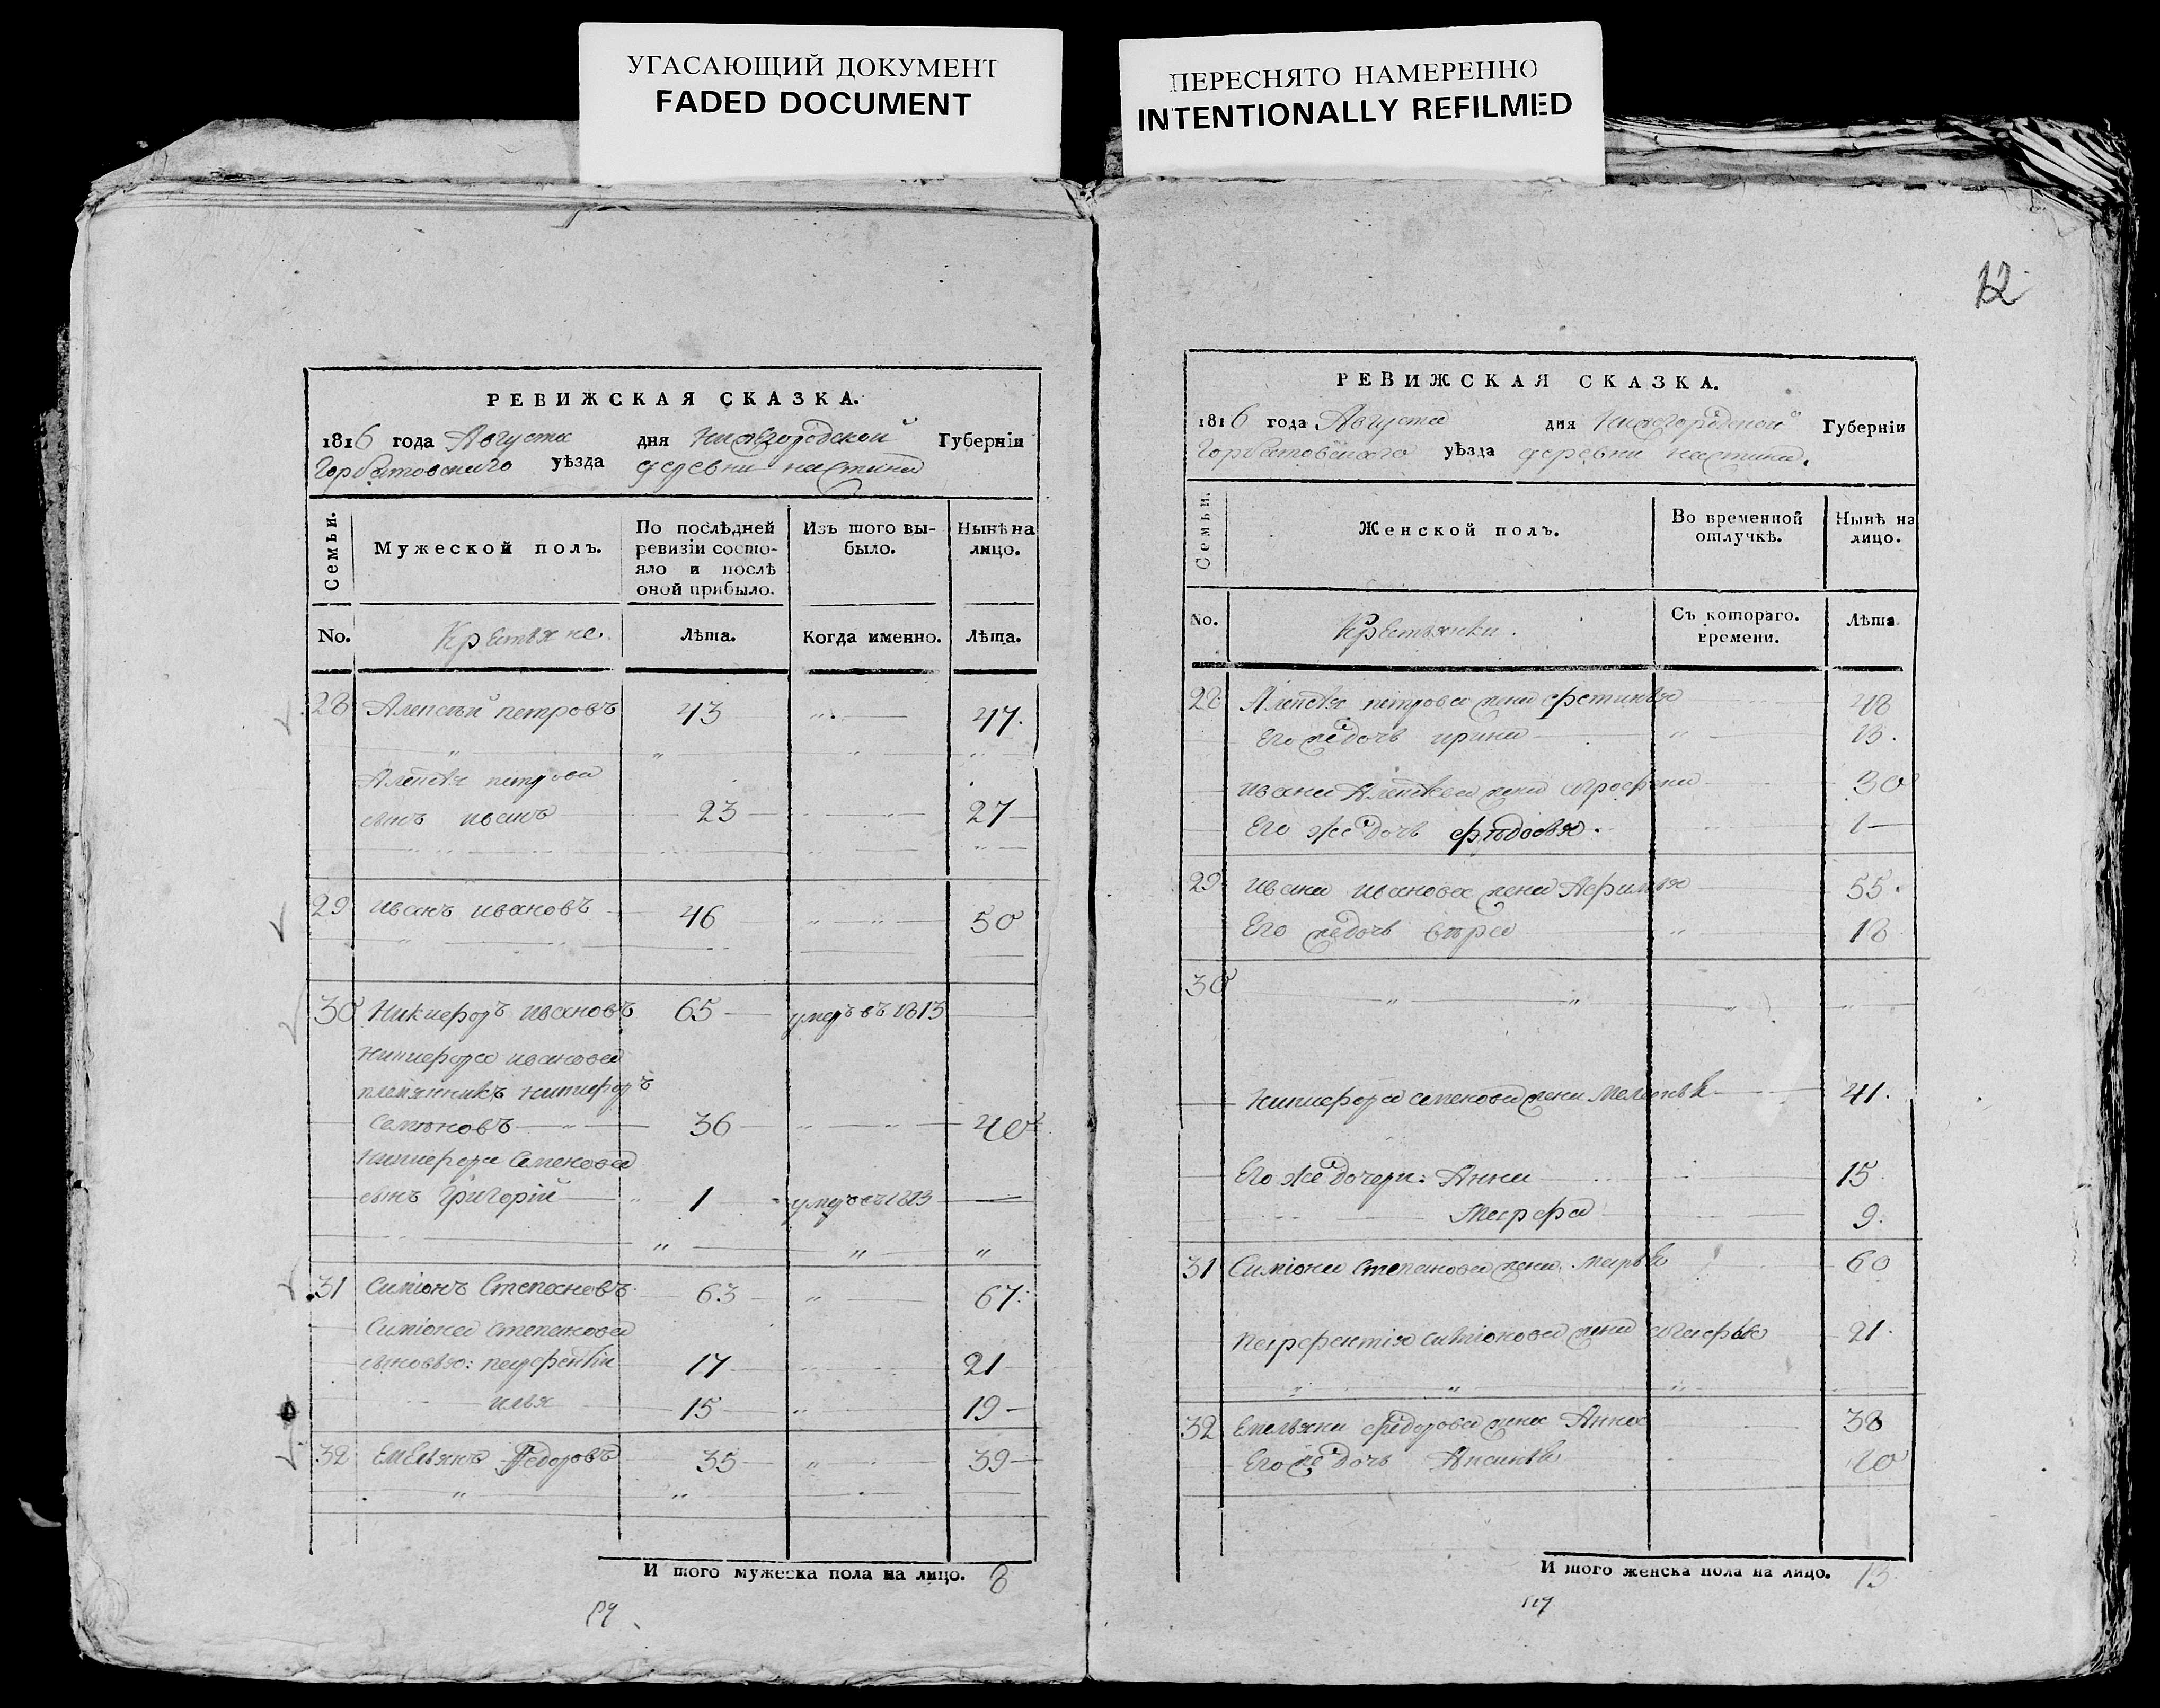 УГАСАЮЩИЙ ДОКУМЕНТ
FADED DOCUMENT
ПЕРЕСНЯТО НАМЕРЕННО
INTENTIONALLY REFILMED
РЕВИЖСКАЯ СКАЗКА.
1816 года Августа дня Нижегородской Губерніи
Горбатовскаго уѣзда деревни
Семьи.
Мужеской полъ.
По послѣдней
ревизіи состо-
яло и послѣ
оной прибыло.
Изъ того вы-
было.
Нынѣ на
лицо.
No. Крестьяне. Лѣта. Когда именно. Лѣта.
28 Алексѣй петровъ 43 47.
Алексѣя петрова
сынъ иванъ 23 27
29 иванъ ивановъ 46 50
30 Никифоръ ивановъ 65 умеръ въ 1813
Никифора иванова
племянникъ никифоръ
Семеновъ 36 40
Никифора Семенова
сынъ Григорій 1 умеръ въ 1813
31 Симіонъ Степановъ 63 67.
Симіона степанова
сыновья: парфентій 17 21
илья 15 19
32 Емельянъ Федоровъ 35 39
И того мужеска пола на лицо. 8
12
РЕВИЖСКАЯ СКАЗКА.
1816 года Августа дня Нижегородской Губерніи
Горбатовскаго уѣзда деревни
Семьи.
Женской полъ.
Во временной
отлучкѣ.
Нынѣ на
лицо.
No. Крестьянки. Съ котораго.
времени.
Лѣта.
28 Алексѣя петрова жена фетинья 48
Его же дочь ирина 13.
ивана Алексѣева жена 30
Его же дочь федосья. 1
29 ивана иванова жена Афимья 55.
Его же дочь вѣра 18
30
Никифора семенова жена 41.
Его же дочери: Анна 15
Марфа 9.
31 Симіона степанова жена марья 60
Парфентія симіонова жена 21.
32 Емельяна федорова жена Анна 38
Его же дочь Аксинья 10
И того женска пола на лицо. 13